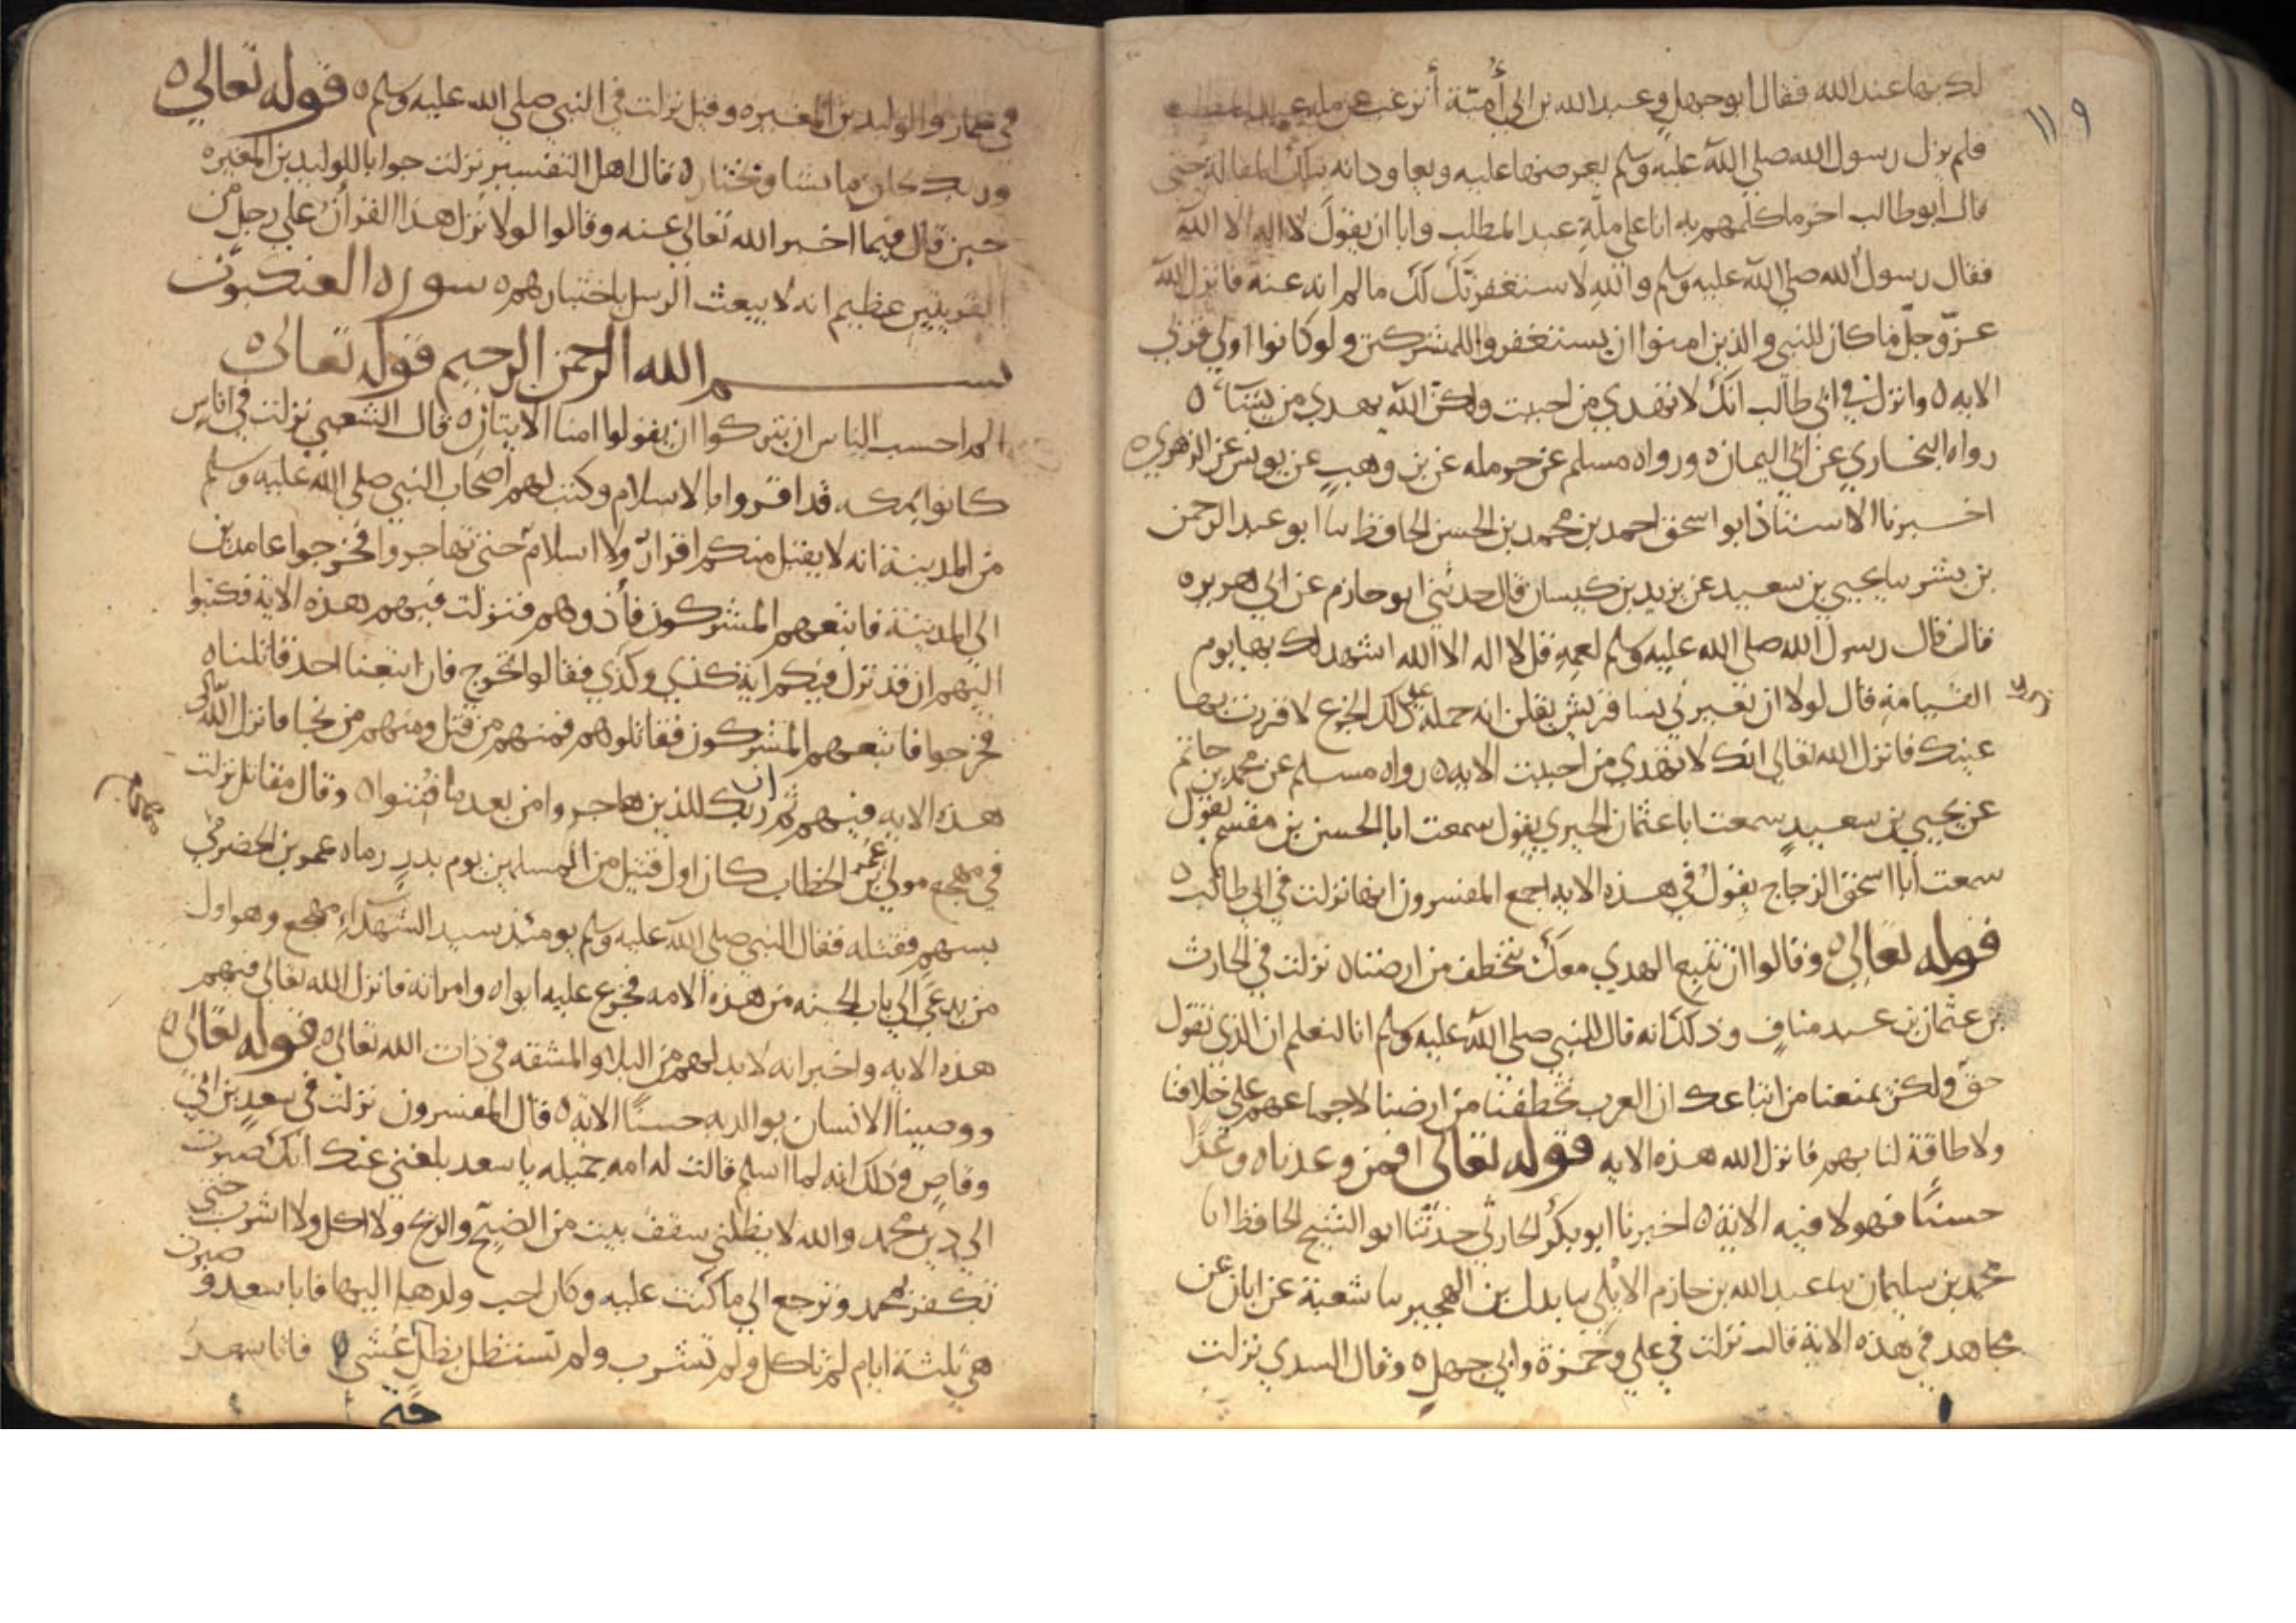 ١١٩
لك بها عند الله فقال ابو جهل وعبد الله بن ابي أمية أترغب عن ملة عبد المطلب
فلم يزل رسول الله صلى الله عليه وسلم يعرضها عليه ويعاودانه بتلك المقالة حتى
قال ابو طالب اخر ما كلمهم به انا على ملة عبد المطلب وابا ان يقول لا اله الا الله
فقال رسول الله صلى الله عليه وسلم والله لاستغفرنّ لك ما لم انه عنه فانزل الله
عزّ وجلّ ما كان للنبي والذين امنوا ان يستغفروا للمشركين ولو كانوا اولي قربى
الايه ٥ وانزل في ابي طالب انك لا تهدي من احببت ولكن الله يهدي من يشآء ٥
رواه البخاري عن ابي اليمان ٥ ورواه مسلم عن حرمله عن بن وهب عن يونس عن الزهري ٥
اخبرنا الاستاذ ابو اسحق احمد بن محمد بن الحسن الحافظ نبا ابو عبد الرحمن
بن بشر نبا يحيى بن سعيد عن يزيد بن كيسان قال حدثني ابو حازم عن ابي هريره
قال قال رسول الله صلى الله عليه وسلم لعمه قل لا اله الا الله اشهد لك بها يوم
القيامة قال لولا ان تعيرني نسا قريش يقلن انه حمله على ذلك الجزع لاقررت بها
عينك فانزل الله تعالى انك لا تهدي من احببت الايه ٥ رواه مسلم عن محمد بن حاتم
عن يحيى بن سعيد سمعت ابا عثمان الحيري يقول سمعت ابا الحسن بن مقسم يقول
سمعت أبا اسحق الزجاج يقول في هذه الايه اجمع المفسرون انها نزلت في ابي طالب ٥
قوله تعالى ٥ وقالوا ان نتبع الهدي معك نتخطف من ارضنا ٥ نزلت في الحارث
بن عثمان بن عبد مناف وذلك انه قال للنبي صلى الله عليه وسلم انا لنعلم ان الذي تقول
حق ولكن يمنعنا من اتباعك ان العرب تخطفنا من ارضنا لاجماعهم على خلافنا
ولا طاقة لنا بهم فانزل الله هذه الايه قوله تعالى افمن وعدناه وعدا
حسنًا فهو لاقيه الاية ٥ اخبرنا ابو بكر الحارثي حدثنا ابو الشيخ الحافظ انا
محمد بن سليمان نبا عبد الله بن حازم الابلي نبا بدل بن المحبر نبا شعبة عن ابان عن
مجاهد في هذه الاية قال نزلت في علي وحمزة وابي جهل ٥ وقال السدي نزلت
في عمار والوليد بن المغيره وقيل نزلت في النبي صلى الله عليه وسلم ٥ قوله تعالى ٥
وربك يخلق ما يشا ويختار ٥ قال اهل التفسير نزلت جوابا للوليد بن المغيره
حين قال فيما اخبر الله تعالى عنه وقالوا لولا نزل هذا القرآن على رجل من
القريتين عظيم انه لا يبعث الرسل باختيارهم ٥ سوره العنكبوت
بسم الله الرحمن الرحيم قوله تعالى ٥
الم احسب الناس ان يتركوا ان يقولوا امنا الايتان ٥ قال الشعبي نزلت في اناس
كانوا بمكه قد اقروا بالاسلام وكتب لهم اصحاب النبي صلى الله عليه وسلم
من المدينة انه لا يقبل منكم اقرار ولا اسلام حتى تهاجروا فخرجوا عامدين
الى المدينة فاتبعهم المشركون فأذوهم فنزلت فيهم هذه الاية فكتبوا
اليهم ان قد نزل فيكم اية كذي وكذي فقالوا نخرج فان اتبعنا احد قاتلناه
فخرجوا فاتبعهم المشركون فقاتلوهم فمنهم من قتل ومنهم من نجا فانزل الله تعالى
هذه الايه فيهم ثم ان ربك للذين هاجروا من بعد ما فتنوا ٥ وقال مقاتل نزلت
في مهجع مولى عمر بن الخطاب كان اول قتيل من المسلمين يوم بدر رماه عمرو بن الحضرمي
بسهم فقتله فقال النبي صلى الله عليه وسلم يومئذ سيد الشهدآء مهجع وهو اول
من يدعى الى باب الجنه من هذه الامه فجزع عليه ابواه وامراته فانزل الله تعالى فيهم
هذه الايه واخبر انه لا بد لهم من البلا والمشقه في ذات الله تعالى ٥ قوله تعالى ٥
ووصينا الانسان بوالديه حسنًا الاية ٥ قال المفسرون نزلت في سعد بن ابي
وقاص وذلك انه لما اسلم قالت له امه جميله يا سعد بلغني عنك انك صبوت
الى دين محمد والله لا يظلني سقف بيت من الضيح والريح ولا اكل ولا اشرب حتى
تكفر بمحمد وترجع الى ما كنت عليه وكان احب ولدها اليها فابا سعد وصبرت
هي ثلثة ايام لم تاكل ولم تشرب ولم تستظل بظل غشي فاتا سعد